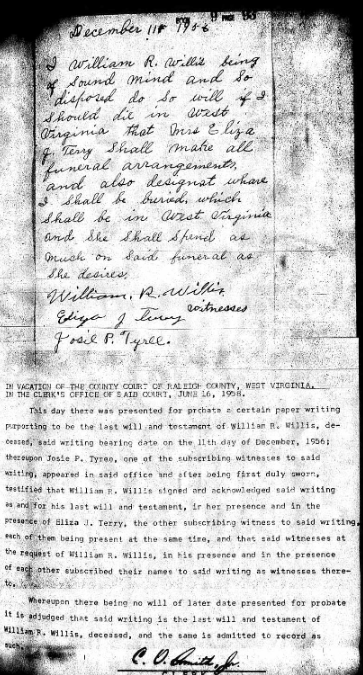 December 11th 1956
I William R. Willis being
of Sound mind and so
disposed do so will if I
should die in West
Virginia that Mrs Eliza
J Terry Shall make all
funeral arrangements,
and also designat where
I shall be buried, which
shall be in West Virginia
and She Shall Spend as
much on Said funeral as
She desires.
William. R. Willis
Eliza J Terry witnesses
Josie P. Tyree.
IN VACATION OF THE COUNTY COURT OF RALEIGH COUNTY, WEST VIRGINIA.
IN THE CLERK'S OFFICE OF SAID COURT, JUNE 16, 1958.
This day there was presented for probate a certain paper writing
purporting to be the last will and testament of William R. Willis, de-
ceased, said writing bearing date on the 11th day of December, 1956;
thereupon Josie P. Tyree, one of the subscribing witnesses to said
writing, appeared in said office and after being first duly sworn,
testified that William R. Willis signed and acknowledged said writing
as and for his last will and testament, in her presence and in the
presence of Eliza J. Terry, the other subscribing witness to said writing,
each of them being present at the same time, and that said witnesses at
the request of William R. Willis, in his presence and in the presence
of each other subscribed their names to said writing as witnesses there-
to.
Whereupon there being no will of later date presented for probate
it is adjudged that said writing is the last will and testament of
William R. Willis, deceased, and the same is admitted to record as
such.
C. O. Smith, Jr.
CLERK